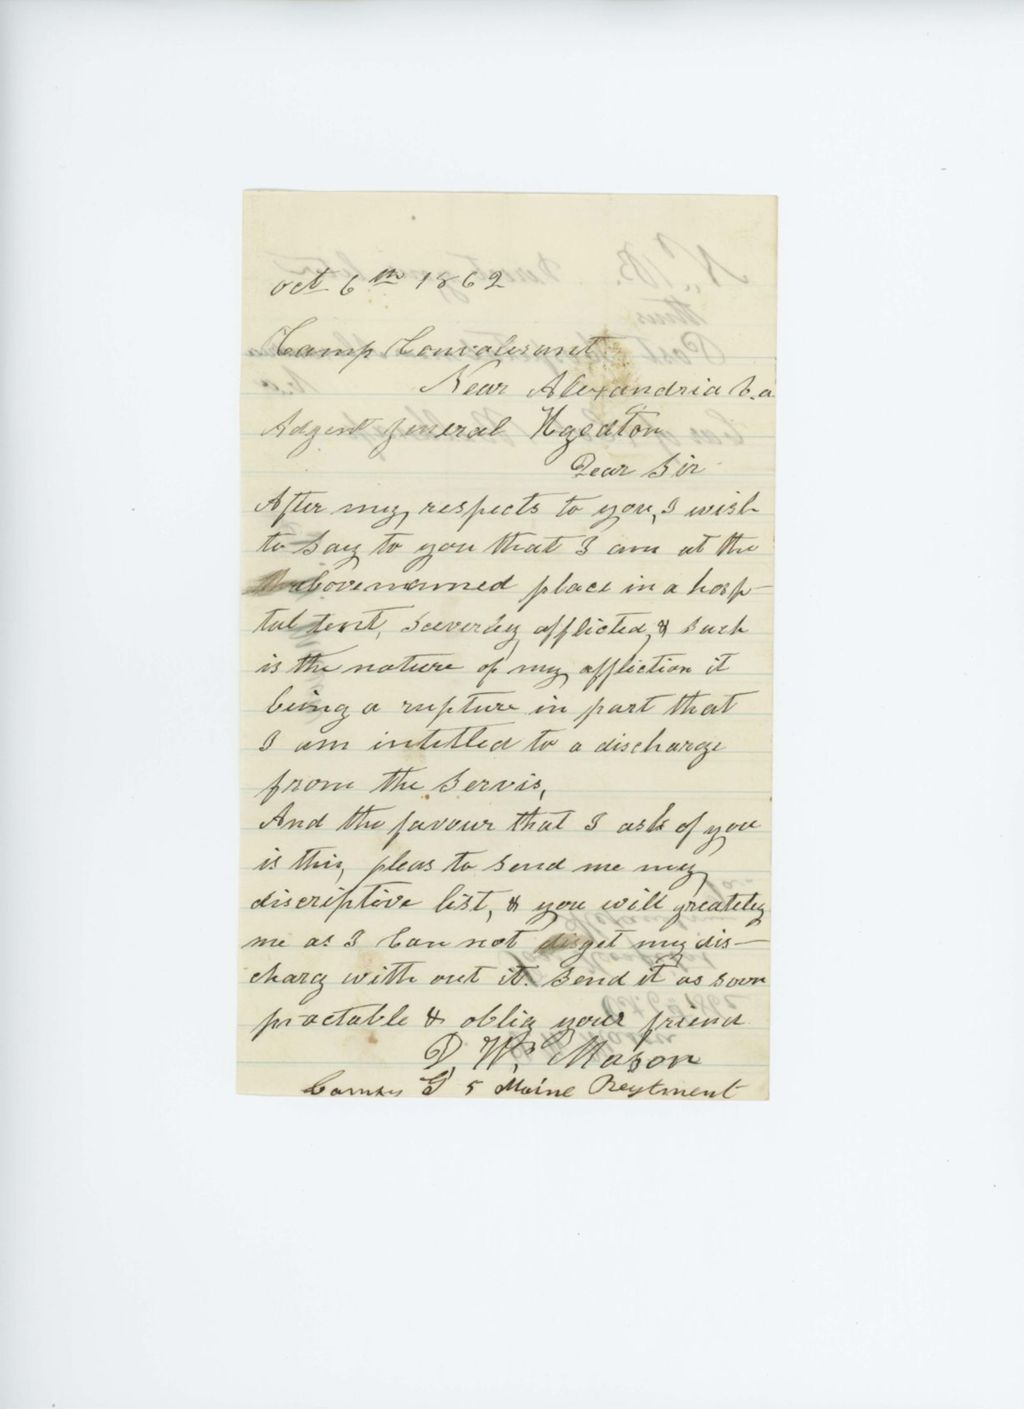 oct 6th 1862
Camp Convalesant
Near Alexandria V.a
Adgent general Hgodton
Dear Sir
After my respects to you, I wish
to say to you that I am at the
abovenamned place in a hosp-
tal tent, Seeverley afflicted, & such
is the nature of my affliction it
being a rupture in part that
I am intitled to a discharge
from the Servis,
And the favour that I ask of you
is this, pleas to Send me my
discriptive list, & you will greatley
me as I Can not get my dis-
charg with out it. Send it as soon
practable & oblig your friend
D, W, Mason
Compy G 5 Maine Regtment